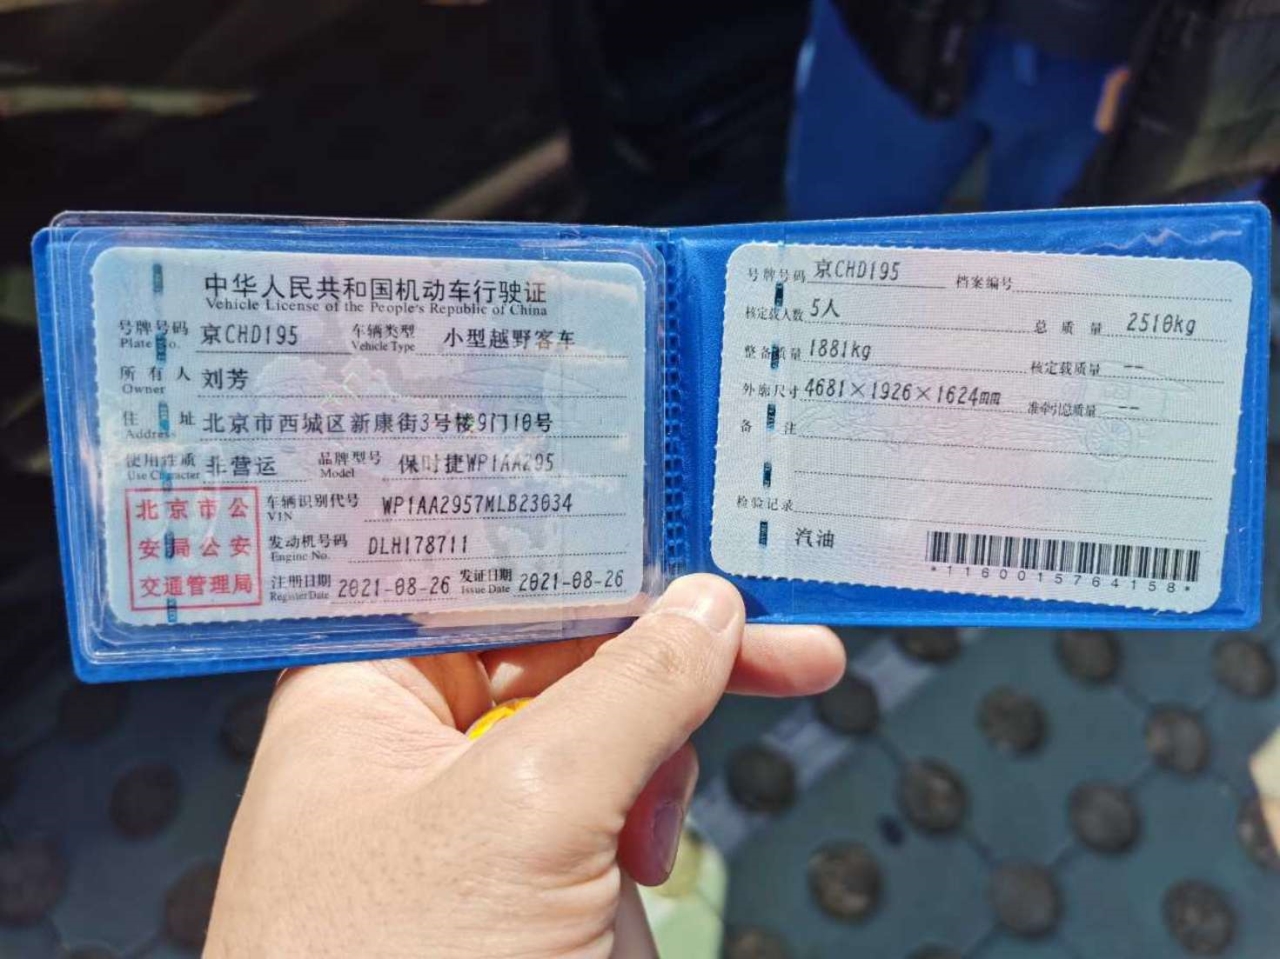 中华人民共和国机动车行驶证
Vehicle License of the People's Republic of China
号牌号码 京CHD195 车辆类型 小型越野客车
Plate No. Vehicle Type
所有人 刘芳
Owner
住址 北京市西城区新康街3号楼9门10号
Address
使用性质 非营运 品牌型号 保时捷WP1AA295
Use Character Model
北京市公
安局公安
交通管理局
车辆识别代号 WP1AA2957MLB23034
VIN
发动机号码 DLH178711
Engine No.
注册日期 2021-08-26 发证日期 2021-08-26
Register Date Issue Date
号牌号码 京CHD195 档案编号
核定载人数 5人 总质量 2510kg
整备质量 1881kg 核定载质量 --
外廓尺寸 4681×1926×1624mm 准牵引总质量 --
备注
检验记录
汽油
*1160015764158*